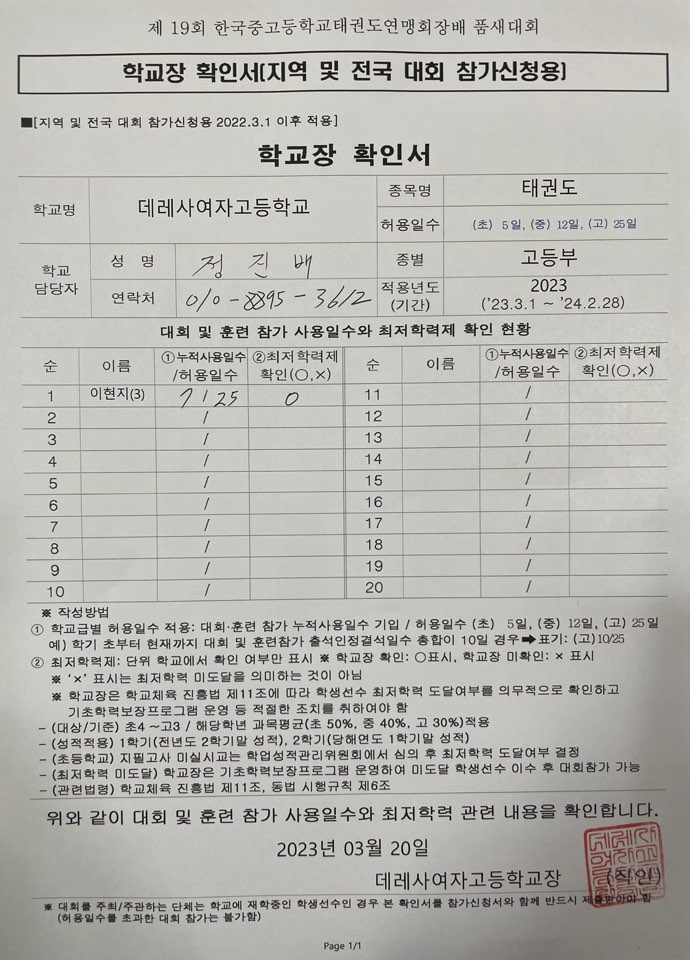 제 19회 한국중고등학교태권도연맹회장배 품새대회
학교장 확인서(지역 및 전국 대회 참가신청용)
■[지역 및 전국 대회 참가신청용 2022.3.1 이후 적용]
학교장 확인서
학교명 데레사여자고등학교 종목명 태권도
허용일수 (초) 5일, (중) 12일, (고) 25일
학교 담당자 성 명 정진배 종별 고등부
연락처 010-8895-3612 적용년도 (기간) 2023 ('23.3.1 ~ '24.2.28)
대회 및 훈련 참가 사용일수와 최저학력제 확인 현황
순 이름 ①누적사용일수/허용일수 ②최저학력제 확인(○,×) 순 이름 ①누적사용일수/허용일수 ②최저학력제 확인(○,×)
1 이현지(3) 7/25 O 11 /
2 / 12 /
3 / 13 /
4 / 14 /
5 / 15 /
6 / 16 /
7 / 17 /
8 / 18 /
9 / 19 /
10 / 20 /
※ 작성방법
① 학교급별 허용일수 적용: 대회·훈련 참가 누적사용일수 기입 / 허용일수 (초) 5일, (중) 12일, (고) 25일
예) 학기 초부터 현재까지 대회 및 훈련참가 출석인정결석일수 총합이 10일 경우➡표기: (고)10/25
② 최저학력제: 단위 학교에서 확인 여부만 표시 ※ 학교장 확인: ○표시, 학교장 미확인: × 표시
※ '×' 표시는 최저학력 미도달을 의미하는 것이 아님
※ 학교장은 학교체육 진흥법 제11조에 따라 학생선수 최저학력 도달여부를 의무적으로 확인하고
기초학력보장프로그램 운영 등 적절한 조치를 취하여야 함
- (대상/기준) 초4 ~고3 / 해당학년 과목평균(초 50%, 중 40%, 고 30%)적용
- (성적적용) 1학기(전년도 2학기말 성적), 2학기(당해연도 1학기말 성적)
- (초등학교) 지필고사 미실시교는 학업성적관리위원회에서 심의 후 최저학력 도달여부 결정
- (최저학력 미도달) 학교장은 기초학력보장프로그램 운영하여 미도달 학생선수 이수 후 대회참가 가능
- (관련법령) 학교체육 진흥법 제11조, 동법 시행규칙 제6조
위와 같이 대회 및 훈련 참가 사용일수와 최저학력 관련 내용을 확인합니다.
2023년 03월 20일
데레사여자고등학교장 (직인)
※ 대회를 주최/주관하는 단체는 학교에 재학중인 학생선수인 경우 본 확인서를 참가신청서와 함께 반드시 제출받아야 함
(허용일수를 초과한 대회 참가는 불가함)
Page 1/1